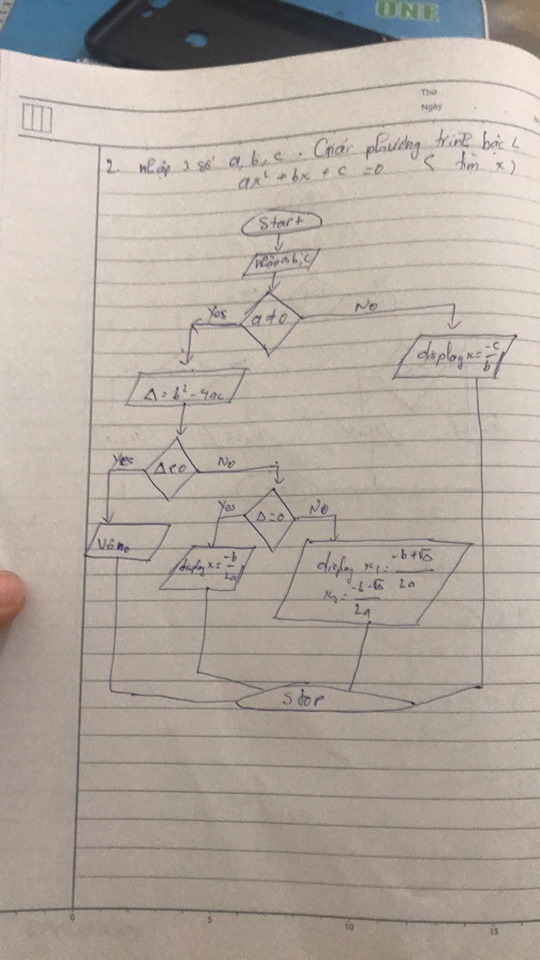 ONE
Thứ
Ngày
2. Nhập 3 số a, b, c. Giải phương trình bậc 2
ax² + bx + c = 0 ( tìm x )
Start
Nhập a, b, c
a≠0
Yes
No
display x = -c/b
Δ = b² - 4ac
Δ<0
Yes
No
Vô no
Δ=0
Yes
No
display x = -b/2a
display x₁ = -b+√Δ/2a
x₂ = -b-√Δ/2a
Stop
0 5 10 15